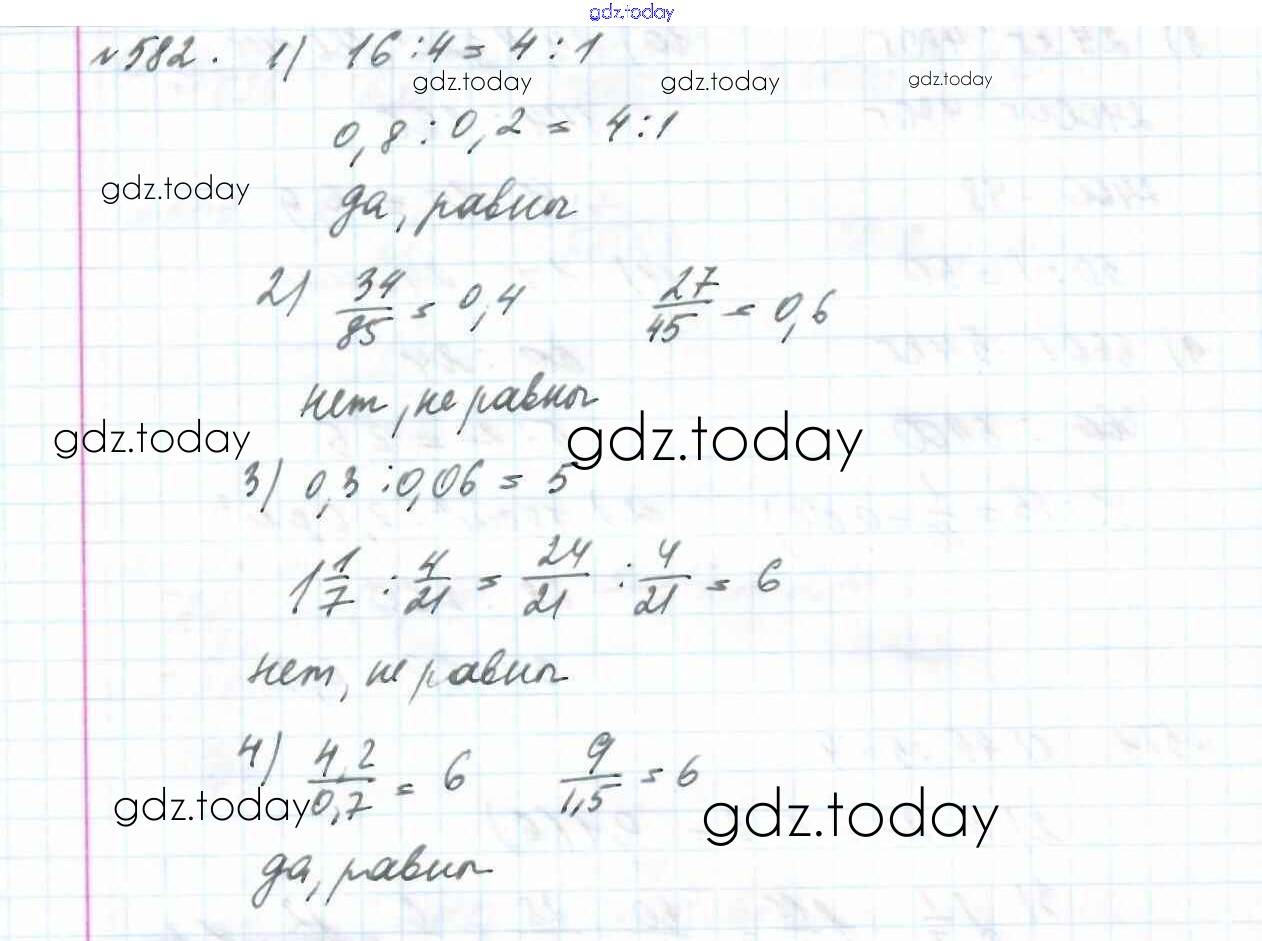 gdz.today
№582. 1) 16 : 4 = 4 : 1
gdz.today gdz.today gdz.today
0,8 : 0,2 = 4 : 1
gdz.today
да, равны
2) 34/85 = 0,4 27/45 = 0,6
нет, не равны
gdz.today gdz.today
3) 0,3 : 0,06 = 5
1 1/7 : 4/21 = 24/21 : 4/21 = 6
нет, не равны
4) 4,2/0,7 = 6 9/1,5 = 6
gdz.today gdz.today
да, равны